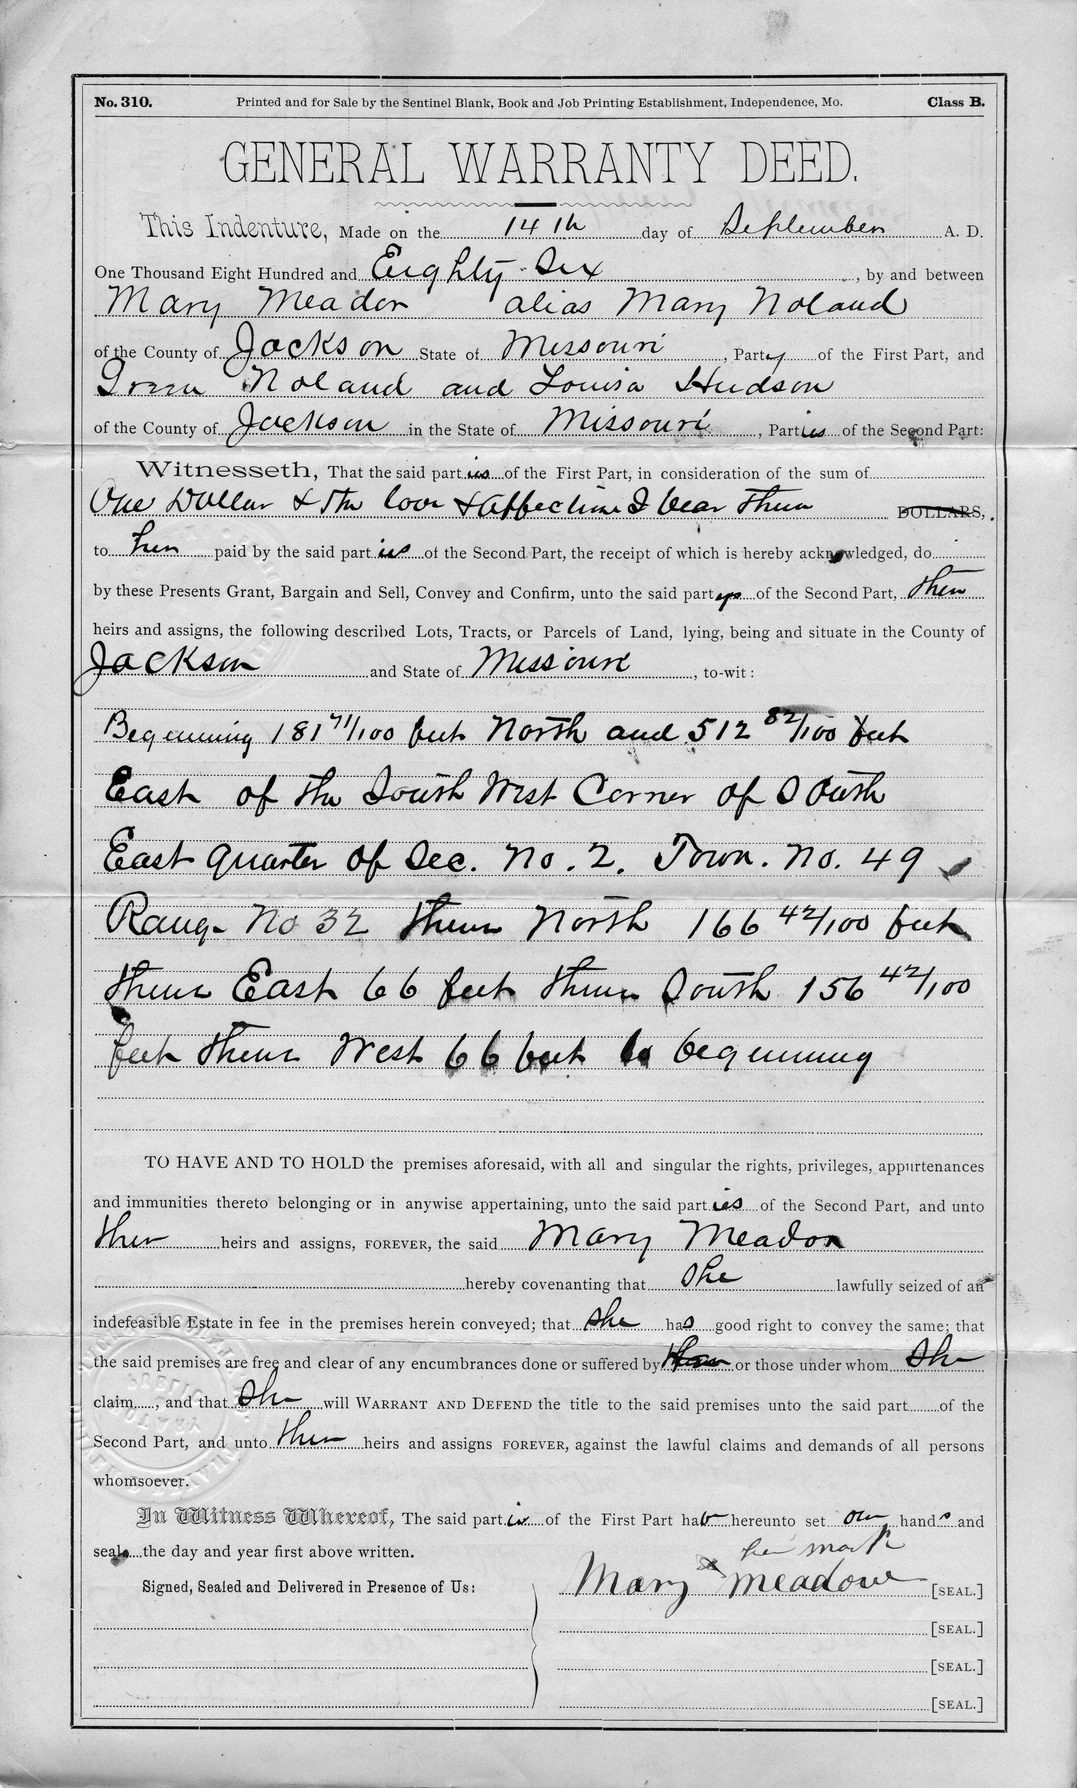 No. 310. Printed and for Sale by the Sentinel Blank, Book and Job Printing Establishment, Independence, Mo. Class B.
GENERAL WARRANTY DEED.
This Indenture, Made on the 14th day of September A. D.
One Thousand Eight Hundred and Eighty Six, by and between
Mary Meador alias Mary Noland
of the County of Jackson State of Missouri, Party of the First Part, and
Green Noland and Louisa Hudson
of the County of Jackson in the State of Missouri, Parties of the Second Part:
Witnesseth, That the said parties of the First Part, in consideration of the sum of
One Dollar & the love & affection I bear them DOLLARS,
to her paid by the said parties of the Second Part, the receipt of which is hereby acknowledged, do
by these Presents Grant, Bargain and Sell, Convey and Confirm, unto the said part of the Second Part, their
heirs and assigns, the following described Lots, Tracts, or Parcels of Land, lying, being and situate in the County of
Jackson and State of Missouri, to-wit:
Beginning 181 71/100 feet North and 512 82/100 feet
East of the South West Corner of South
East quarter of Sec. No. 2. Town. No. 49
Range No 32 thence North 166 42/100 feet
thence East 66 feet thence South 156 42/100
feet thence West 66 feet to beginning
TO HAVE AND TO HOLD the premises aforesaid, with all and singular the rights, privileges, appurtenances
and immunities thereto belonging or in anywise appertaining, unto the said parties of the Second Part, and unto
their heirs and assigns, FOREVER, the said Mary Meador
hereby covenanting that She lawfully seized of an
indefeasible Estate in fee in the premises herein conveyed; that she has good right to convey the same; that
the said premises are free and clear of any encumbrances done or suffered by or those under whom She
claim, and that She will WARRANT AND DEFEND the title to the said premises unto the said part of the
Second Part, and unto their heirs and assigns FOREVER, against the lawful claims and demands of all persons
whomsoever.
In Witness Whereof, The said parties of the First Part have hereunto set our hands and
seals the day and year first above written.
her mark
Signed, Sealed and Delivered in Presence of Us: Mary x Meadow [SEAL.]
[SEAL.]
[SEAL.]
[SEAL.]